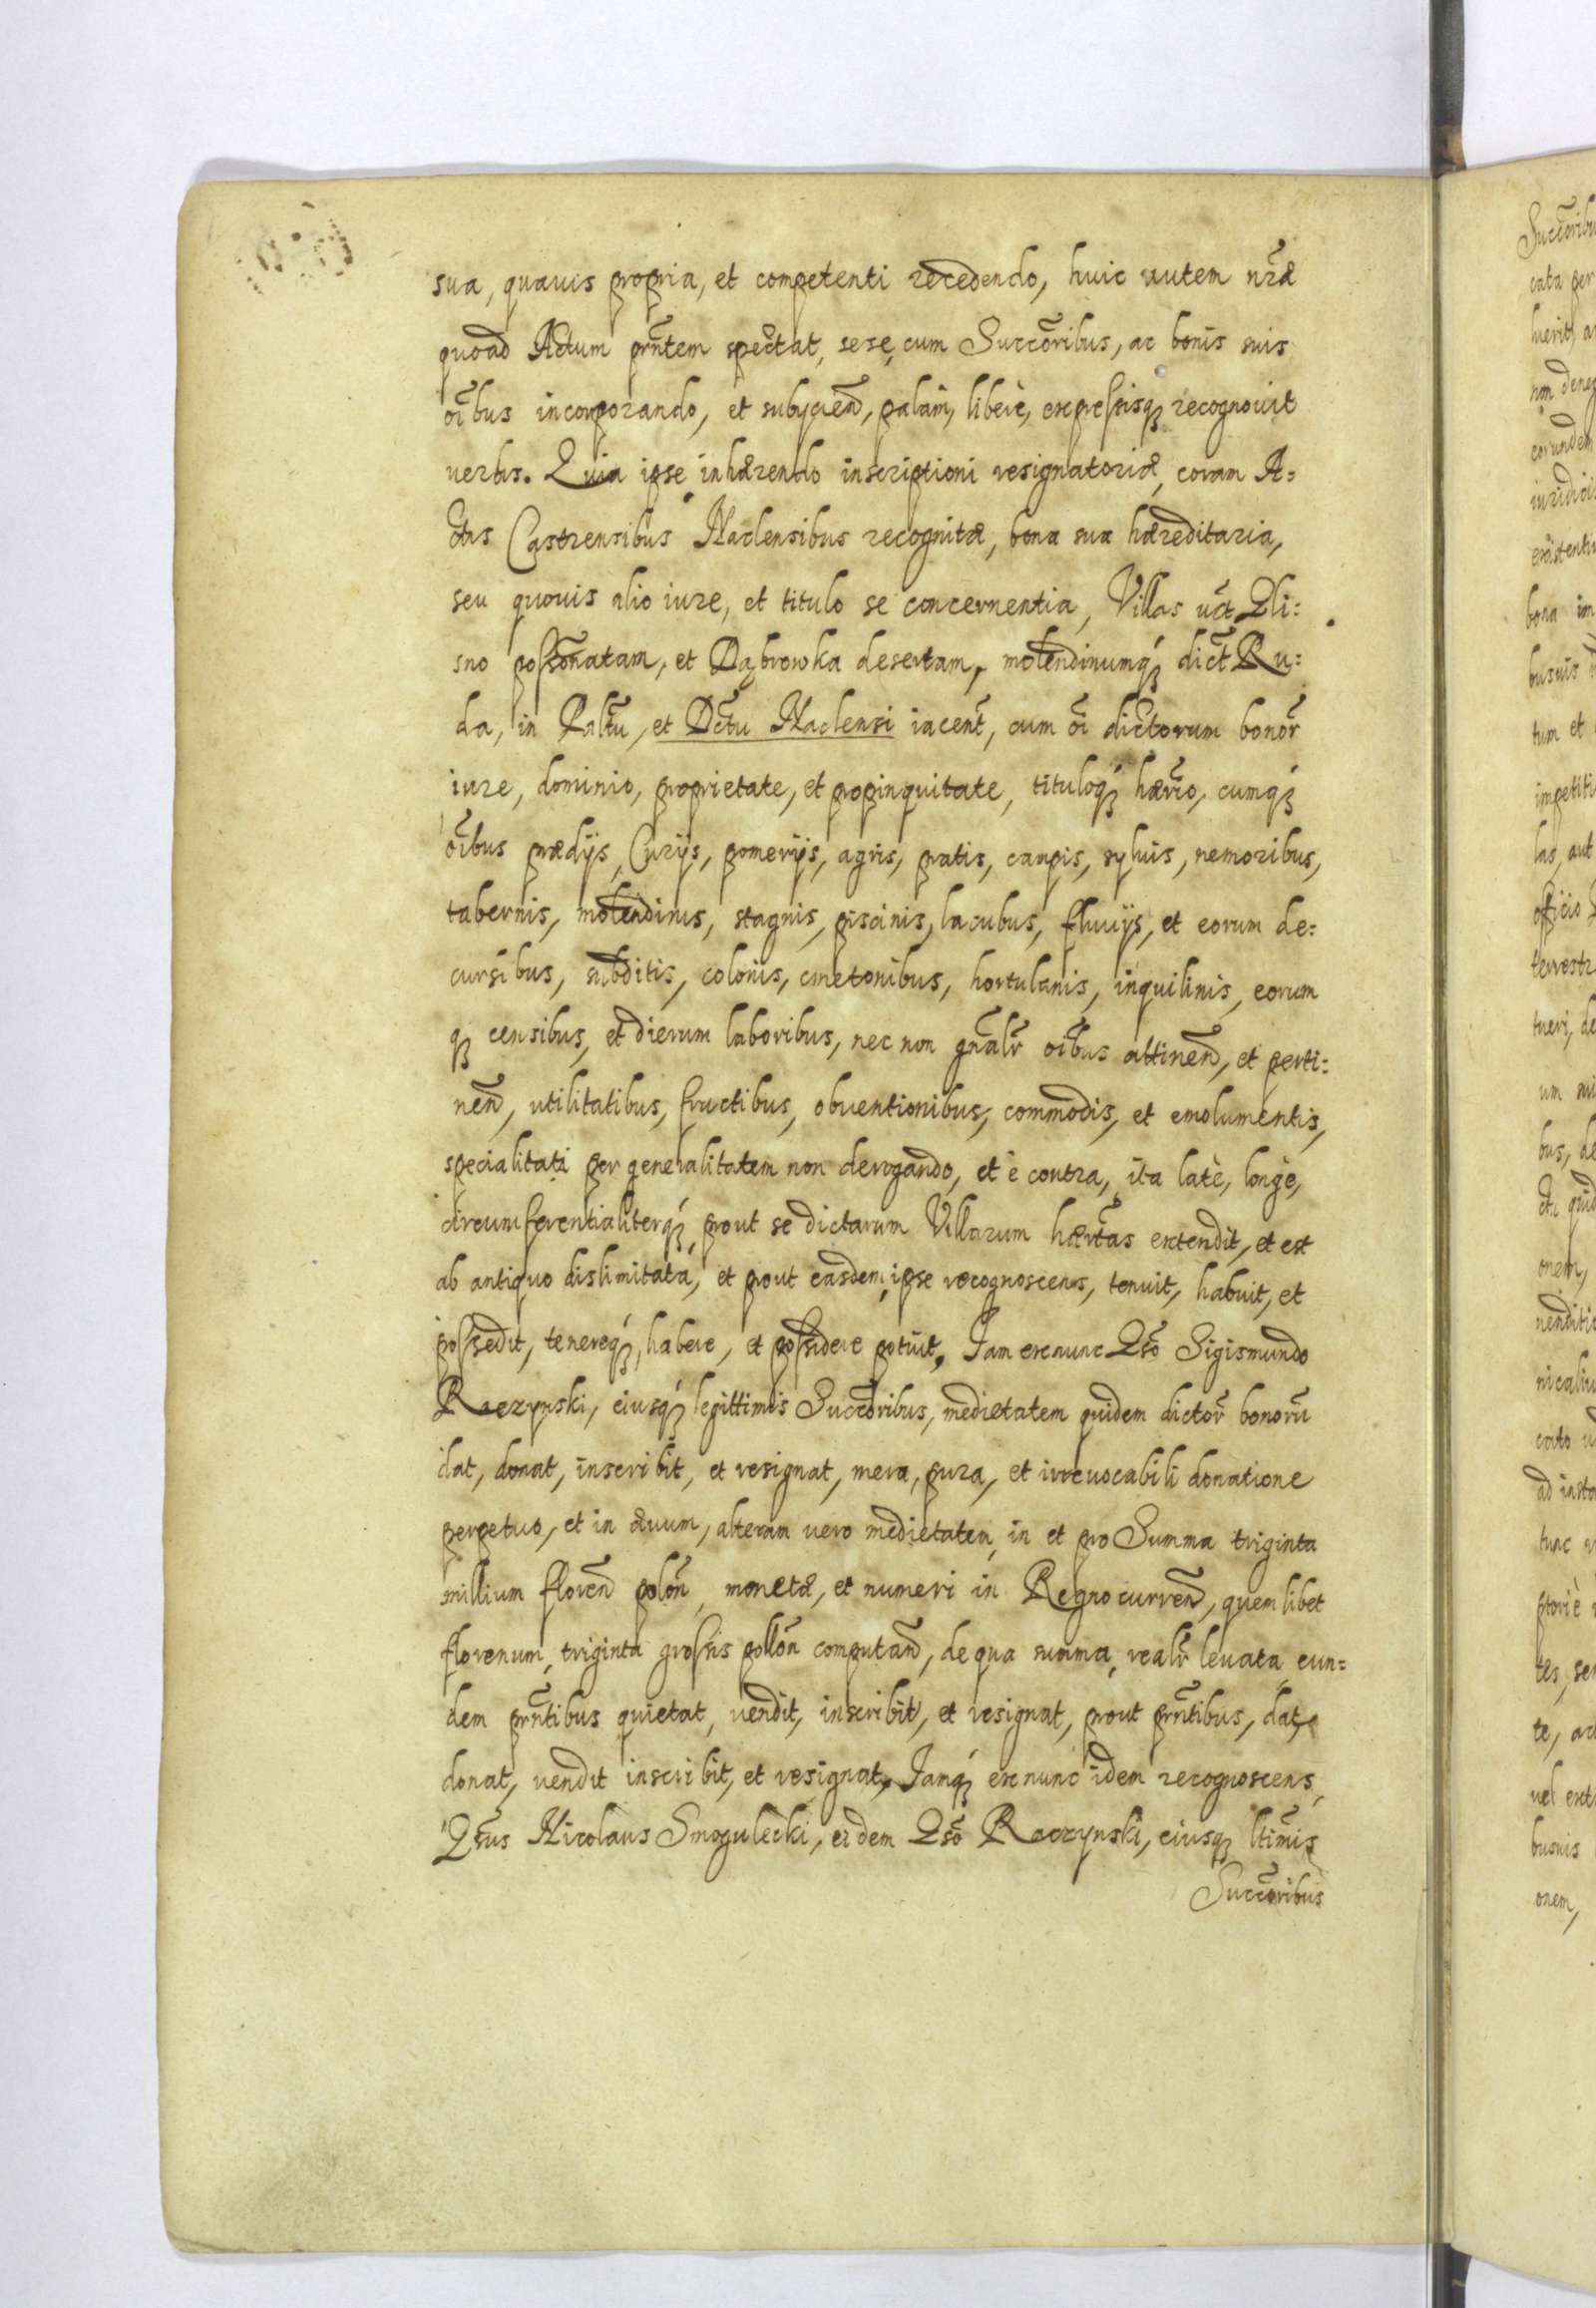 sua, quauis propria, et competenti recedendo, huic autem nr̃æ
quoad Actum prñtem spectat, sese, cum Succõribus, ac bonis suis
oĩbus incorporando, et subycieñ, palam, liberè, expressisq; recognouit
verbis. Quia ipse inhærendo inscriptioni resignatoriæ, coram A=
ctis Castrensibus Naclensibus recognitæ, bona sua hæreditaria,
seu quouis alio iure, et titulo se concernentia, Villas vct̃ Dli=
sno possõnatam, et Dąbrowka desertam, molendinumq́; dict̃ Ru=
da, in Paltũ, et Dct̃u Naclensi iaceñt, cum oĩ dictorum bonor̃
iure, dominio, proprietate, et propinquitate, tituloq́; hær̃io, cumq́;
oĩbus prædijs, Curijs, pomerijs, agris, pratis, campis, syluis, nemoribus,
tabernis, molendinis, stagnis, piscinis, lacubus, fluuijs, et eorum de=
cursibus, subditis, colonis, cmetonibus, hortulanis, inquilinis, eorum
q; censibus, et dierum laboribus, nec non gñalr̃ oĩbus attineñ, et perti=
neñ, vtilitatibus, fructibus, obuentionibus, commodis, et emolumentis,
specialitati per generalitatem non derogando, et è contra, ita latè, longè,
circumferentialiterq́; prout se dictarum Villarum hær̃tas extendit, et est
ab antiquo dislimitata, et prout easdem, ipse recognoscens, tenuit, habuit, et
possedit, tenereq́;, habere, et possidere potuit, Jam exnunc Gsõ Sigismundo
Raczynski, eiusq́; legittimis Succõribus, medietatem quidem dictor̃ bonorũ
dat, donat, inscribit, et resignat, mera, pura, et irreuocabili donatione
perpetuo, et in æuum, alteram vero medietatem, in et pro Summa triginta
millium floreñ poloñ, monetæ, et numeri in Regno curreñ, quemlibet
florenum, triginta grossis polloñ computañ, de qua summa, realr̃ leuata eun=
dem prñtibus quietat, vendit, inscribit, et resignat, prout prñtibus, dat,
donat, vendit inscribit, et resignat, Jamq́; exnunc idem recognoscens,
Gsũs Nicolaus Smogulecki, eidem Gsõ Raczynski, eiusq; ltĩmis
Succõribus